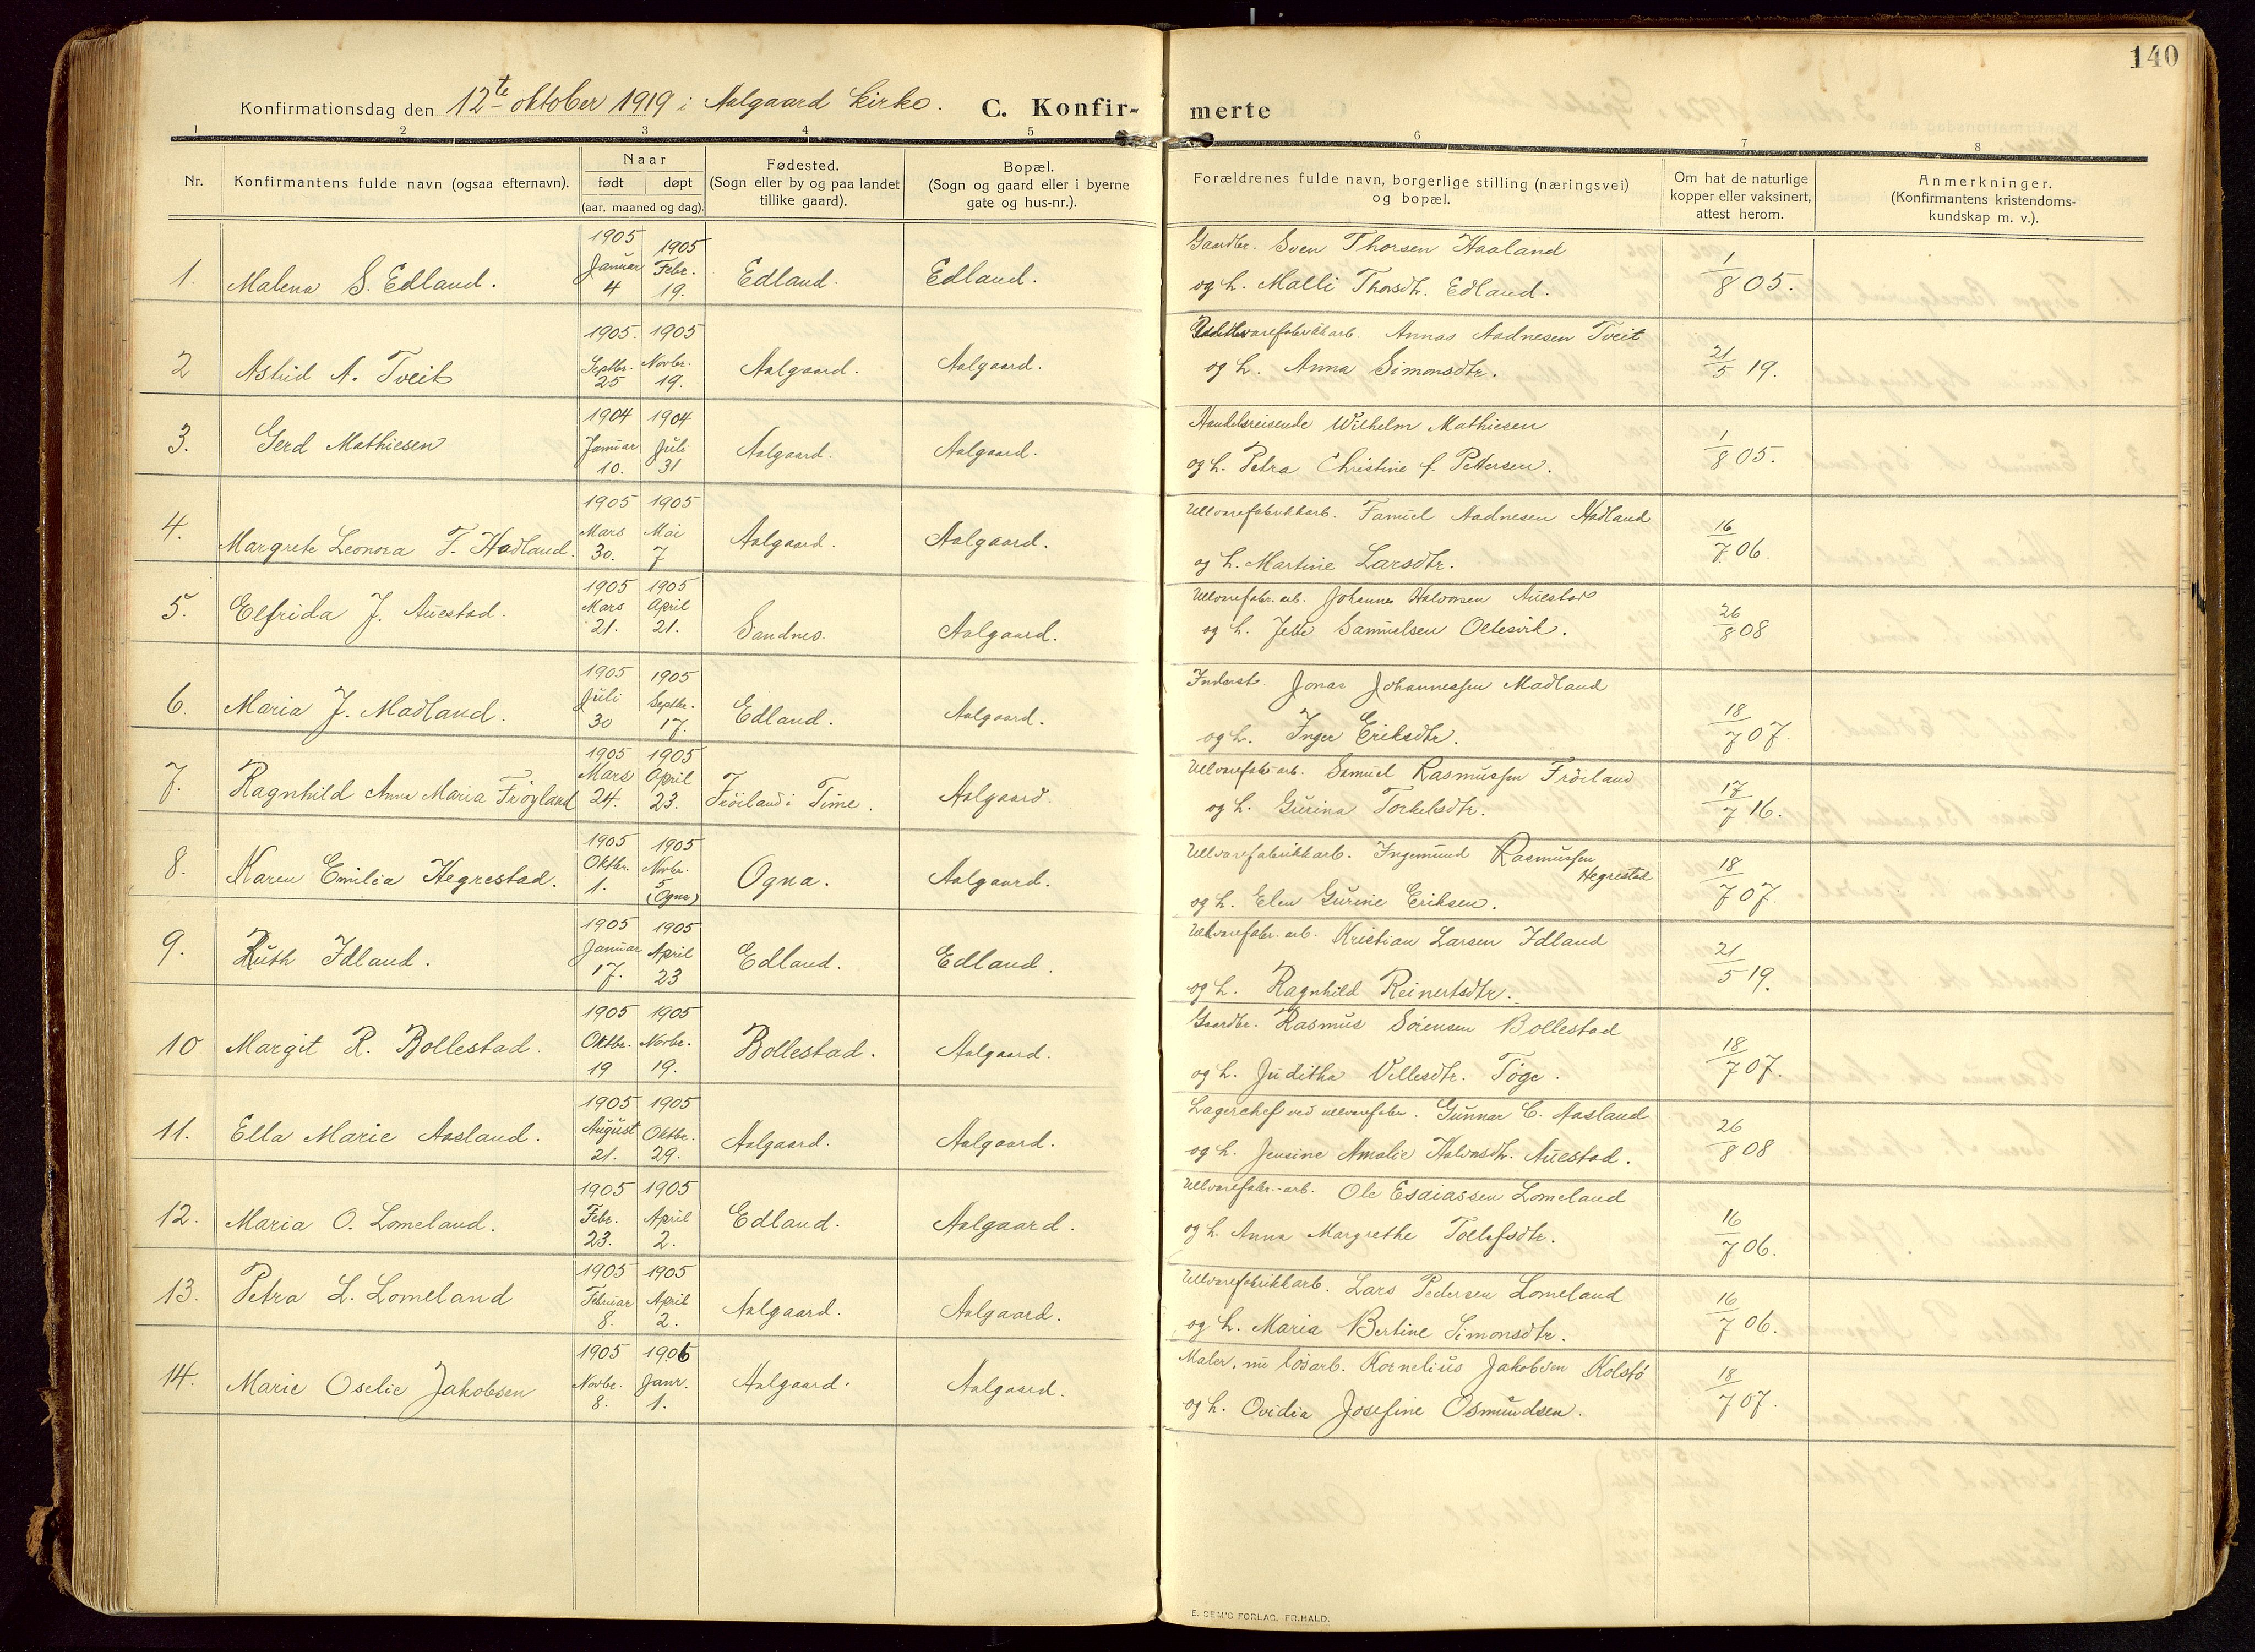 140
Konfirmationsdag den 12te oktober 1919 i Aalgaard kirke. C. Konfir- merte
1 2 3 4 5 6 7 8
Nr. Konfirmantens fulde navn (ogsaa efternavn). Naar født døpt (aar, maaned og dag). Fødested. (Sogn eller by og paa landet tillike gaard). Bopæl. (Sogn og gaard eller i byerne gate og hus-nr.). Forældrenes fulde navn, borgerlige stilling (næringsvei) og bopæl. Om hat de naturlige kopper eller vaksinert, attest herom. Anmerkninger. (Konfirmantens kristendoms- kundskap m. v.).
1. Malena S. Edland. 1905 Januar 4 1905 Febr. 19. Edland. Edland. Gaardbr. Sven Thorsen Haaland
og h. Malli Thorsdtr. Edland. 1/8 05.
2 Astrid A. Tveit 1905. Septbr. 25 1905 Novbr. 19. Aalgaard. Aalgaard. Uldvarefabrikkarb. Annas Aadnesen Tveit
og h. Anna Simonsdtr. 21/5 19.
3. Gerd Mathiesen 1904 Januar 10. 1904 Juli 31 Aalgaard. Aalgaard. Handelsreisende Wilhelm Mathiesen
og h. Petra Christine f. Pettersen. 1/8 05.
4. Margrete Leonora F. Hadland. 1905 Mars 30. 1905 Mai 7 Aalgaard. Aalgaard. Ullvarefabrikkarb. Famuel Aadnesen Hadland
og h. Martine Larsdtr. 16/7 06
5. Elfrida J. Auestad. 1905 Mars 21. 1905 April 21. Sandnes. Aalgaard. Ullvarefabr. arb. Johannes Halvorsen Auestad
og h. Jette Samuelsen Oltesvik. 26/8 08
6. Maria J. Madland. 1905 Juli 30 1905 Septbr. 17. Edland. Aalgaard. Inderst. Jonas Johannessen Madland
og h. Inger Eriksdtr. 18/7 07.
7. Ragnhild Anna Maria Frøyland 1905 Mars 24. 1905 April 23. Frøiland i Time. Aalgaard. Ullvarefabr. arb. Samuel Rasmussen Frøiland
og h. Gurina Torkelsdtr. 17/7 16.
8. Karen Emilia Hegrestad. 1905 Oktbr. 1. 1905 Novbr. 5 (Ogna) Ogna. Aalgaard. Ullvarefabrikkarb. Ingemund Rasmussen Hegrestad
og h. Elen Gurine Eriksen. 18/7 07.
9. Ruth Idland. 1905 Januar 17. 1905 April 23 Edland. Edland. Ullvarefabr. arb. Kristian Larsen Idland
og h. Ragnhild Reinertsdtr. 21/5 19.
10 Margit R. Bollestad. 1905 Oktbr. 19 1905 Novbr. 19. Bollestad. Aalgaard. Gaardbr. Rasmus Sørensen Bollestad
og h. Juditha Villesdtr. Töge. 18/7 07.
11. Ella Marie Aasland. 1905 August 21. 1905 Oktbr. 29. Aalgaard. Aalgaard. Lagerchef ved ullvarefabr. Gunnar C. Aasland
og h. Jensine Amalie Halvorsdtr. Auestad. 26/8 08
12. Maria O. Lomeland. 1905 Febr. 23. 1905 April 2. Edland. Aalgaard. Ullvarefabr.-arb. Ole Esaiassen Lomeland
og h. Anna Margrethe Tollefsdtr. 16/7 06.
13. Petra L. Lomeland 1905 Februar 8. 1905 April 2. Aalgaard. Aalgaard. Ullvarefabrikkarb. Lars Pedersen Lomeland
og h. Maria Bertine Simonsdtr. 16/7 06.
14. Marie Oselie Jakobsen 1905 Novbr. 8. 1906 Janr. 1. Aalgaard. Aalgaard. Maler, nu løsarb. Kornelius Jakobsen Kolstø
og h. Ovidia Josefine Osmundsen. 18/7 07.
E. SEM'S FORLAG, FR.HALD.